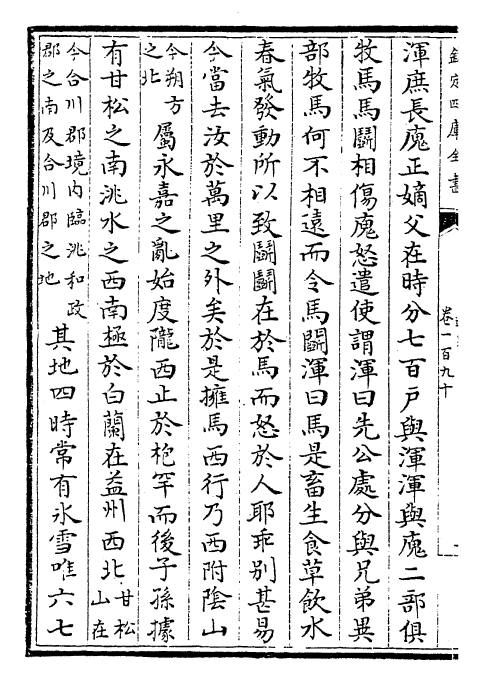 欽定四庫全書
卷一百九十
渾庶長廆正嫡父在時分七百戸與渾渾與廆二部俱
牧馬馬鬭相傷廆怒遣使謂渾曰先公處分與兄弟異
部牧馬何不相遠而令馬鬭渾曰馬是畜生食草飲水
春氣發動所以致鬭鬭在於馬而怒於人耶乖别甚易
今當去汝於萬里之外矣於是擁馬西行乃西附陰山
今朔方之北
屬永嘉之亂始度隴西止於枹罕而後子孫據
有甘松之南洮水之西南極於白蘭在益州西北
甘松山在
今合川郡境内臨洮和政
郡之南及合川郡之地
其地四時常有氷雪唯六七